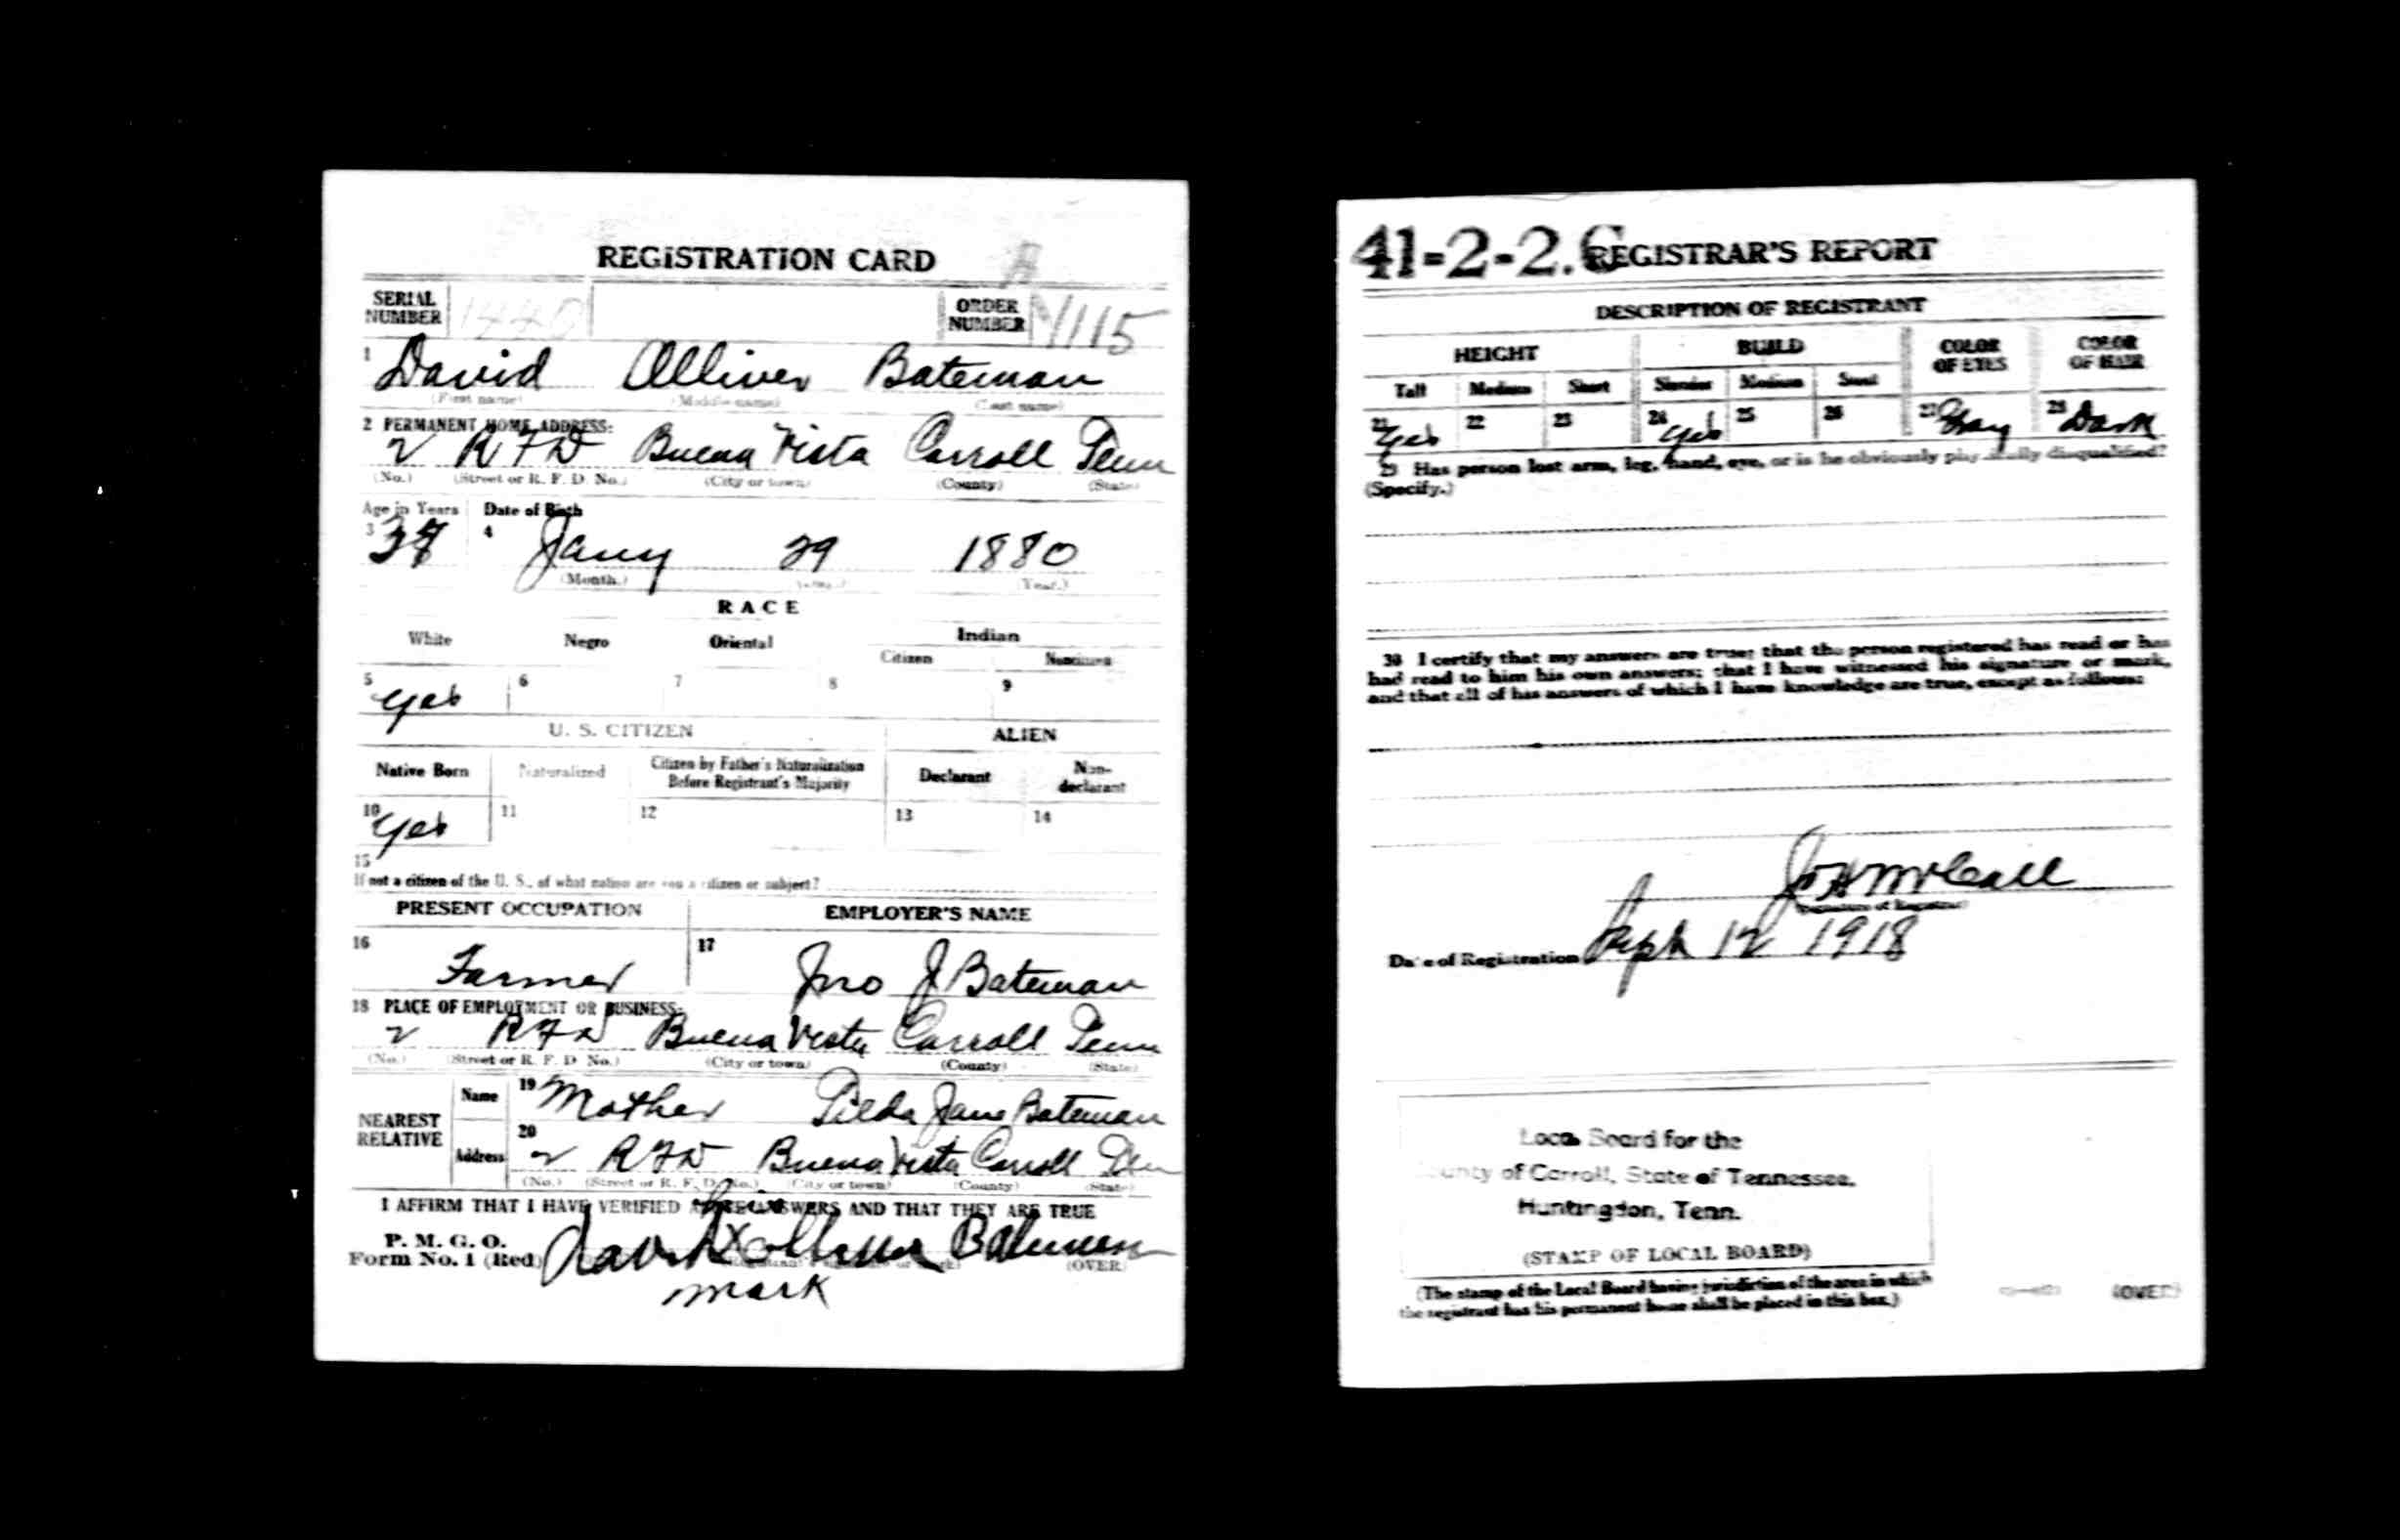 REGISTRATION CARD
SERIAL NUMBER
ORDER NUMBER 1115
1 David Olliver Bateman
(First name) (Middle name) (Last name)
2 PERMANENT HOME ADDRESS:
2 RFD Buena Vista Carroll Tenn
(No.) (Street or R. F. D. No.) (City or town) (County) (State)
Age in Years Date of Birth
3 4 Jany 29 1880
(Month.) (Year.)
RACE
White Negro Oriental Indian
Citizen Noncitizen
5 Yes 6 7 8 9
U. S. CITIZEN ALIEN
Native Born Naturalized Citizen by Father's Naturalization Before Registrant's Majority Declarant Non-declarant
10 Yes 11 12 13 14
15
If not a citizen of the U. S., of what nation are you a citizen or subject?
PRESENT OCCUPATION EMPLOYER'S NAME
16 Farmer 17 Jno J Bateman
18 PLACE OF EMPLOYMENT OR BUSINESS:
2 RFD Buena Vista Carroll Tenn
(No.) (Street or R. F. D. No.) (City or town) (County) (State)
NEAREST RELATIVE
Name 19 Mother Tilda Jane Bateman
Address 20 2 RFD Buena Vista Carroll Tenn
(No.) (Street or R. F. D. No.) (City or town) (County) (State)
I AFFIRM THAT I HAVE VERIFIED ABOVE ANSWERS AND THAT THEY ARE TRUE
his
P. M. G. O.
Form No. 1 (Red) David X Olliver Bateman
(OVER)
mark
41-2-2. C REGISTRAR'S REPORT
DESCRIPTION OF REGISTRANT
HEIGHT BUILD COLOR OF EYES COLOR OF HAIR
Tall Medium Short Slender Medium Stout
21 Yes 22 23 24 Yes 25 26 27 Gray 28 Dark
29 Has person lost arm, leg, hand, eye, or is he obviously physically disqualified?
(Specify.)
30 I certify that my answers are true; that the person registered has read or has
had read to him his own answers; that I have witnessed his signature or mark,
and that all of his answers of which I have knowledge are true, except as follows:
(Signature of Registrar)
Date of Registration Sept 12 1918
Local Board for the
County of Carroll, State of Tennessee,
Huntingdon, Tenn.
(STAMP OF LOCAL BOARD)
(The stamp of the Local Board having jurisdiction of the area in which
the registrant has his permanent home shall be placed in this box.)
(OVER)